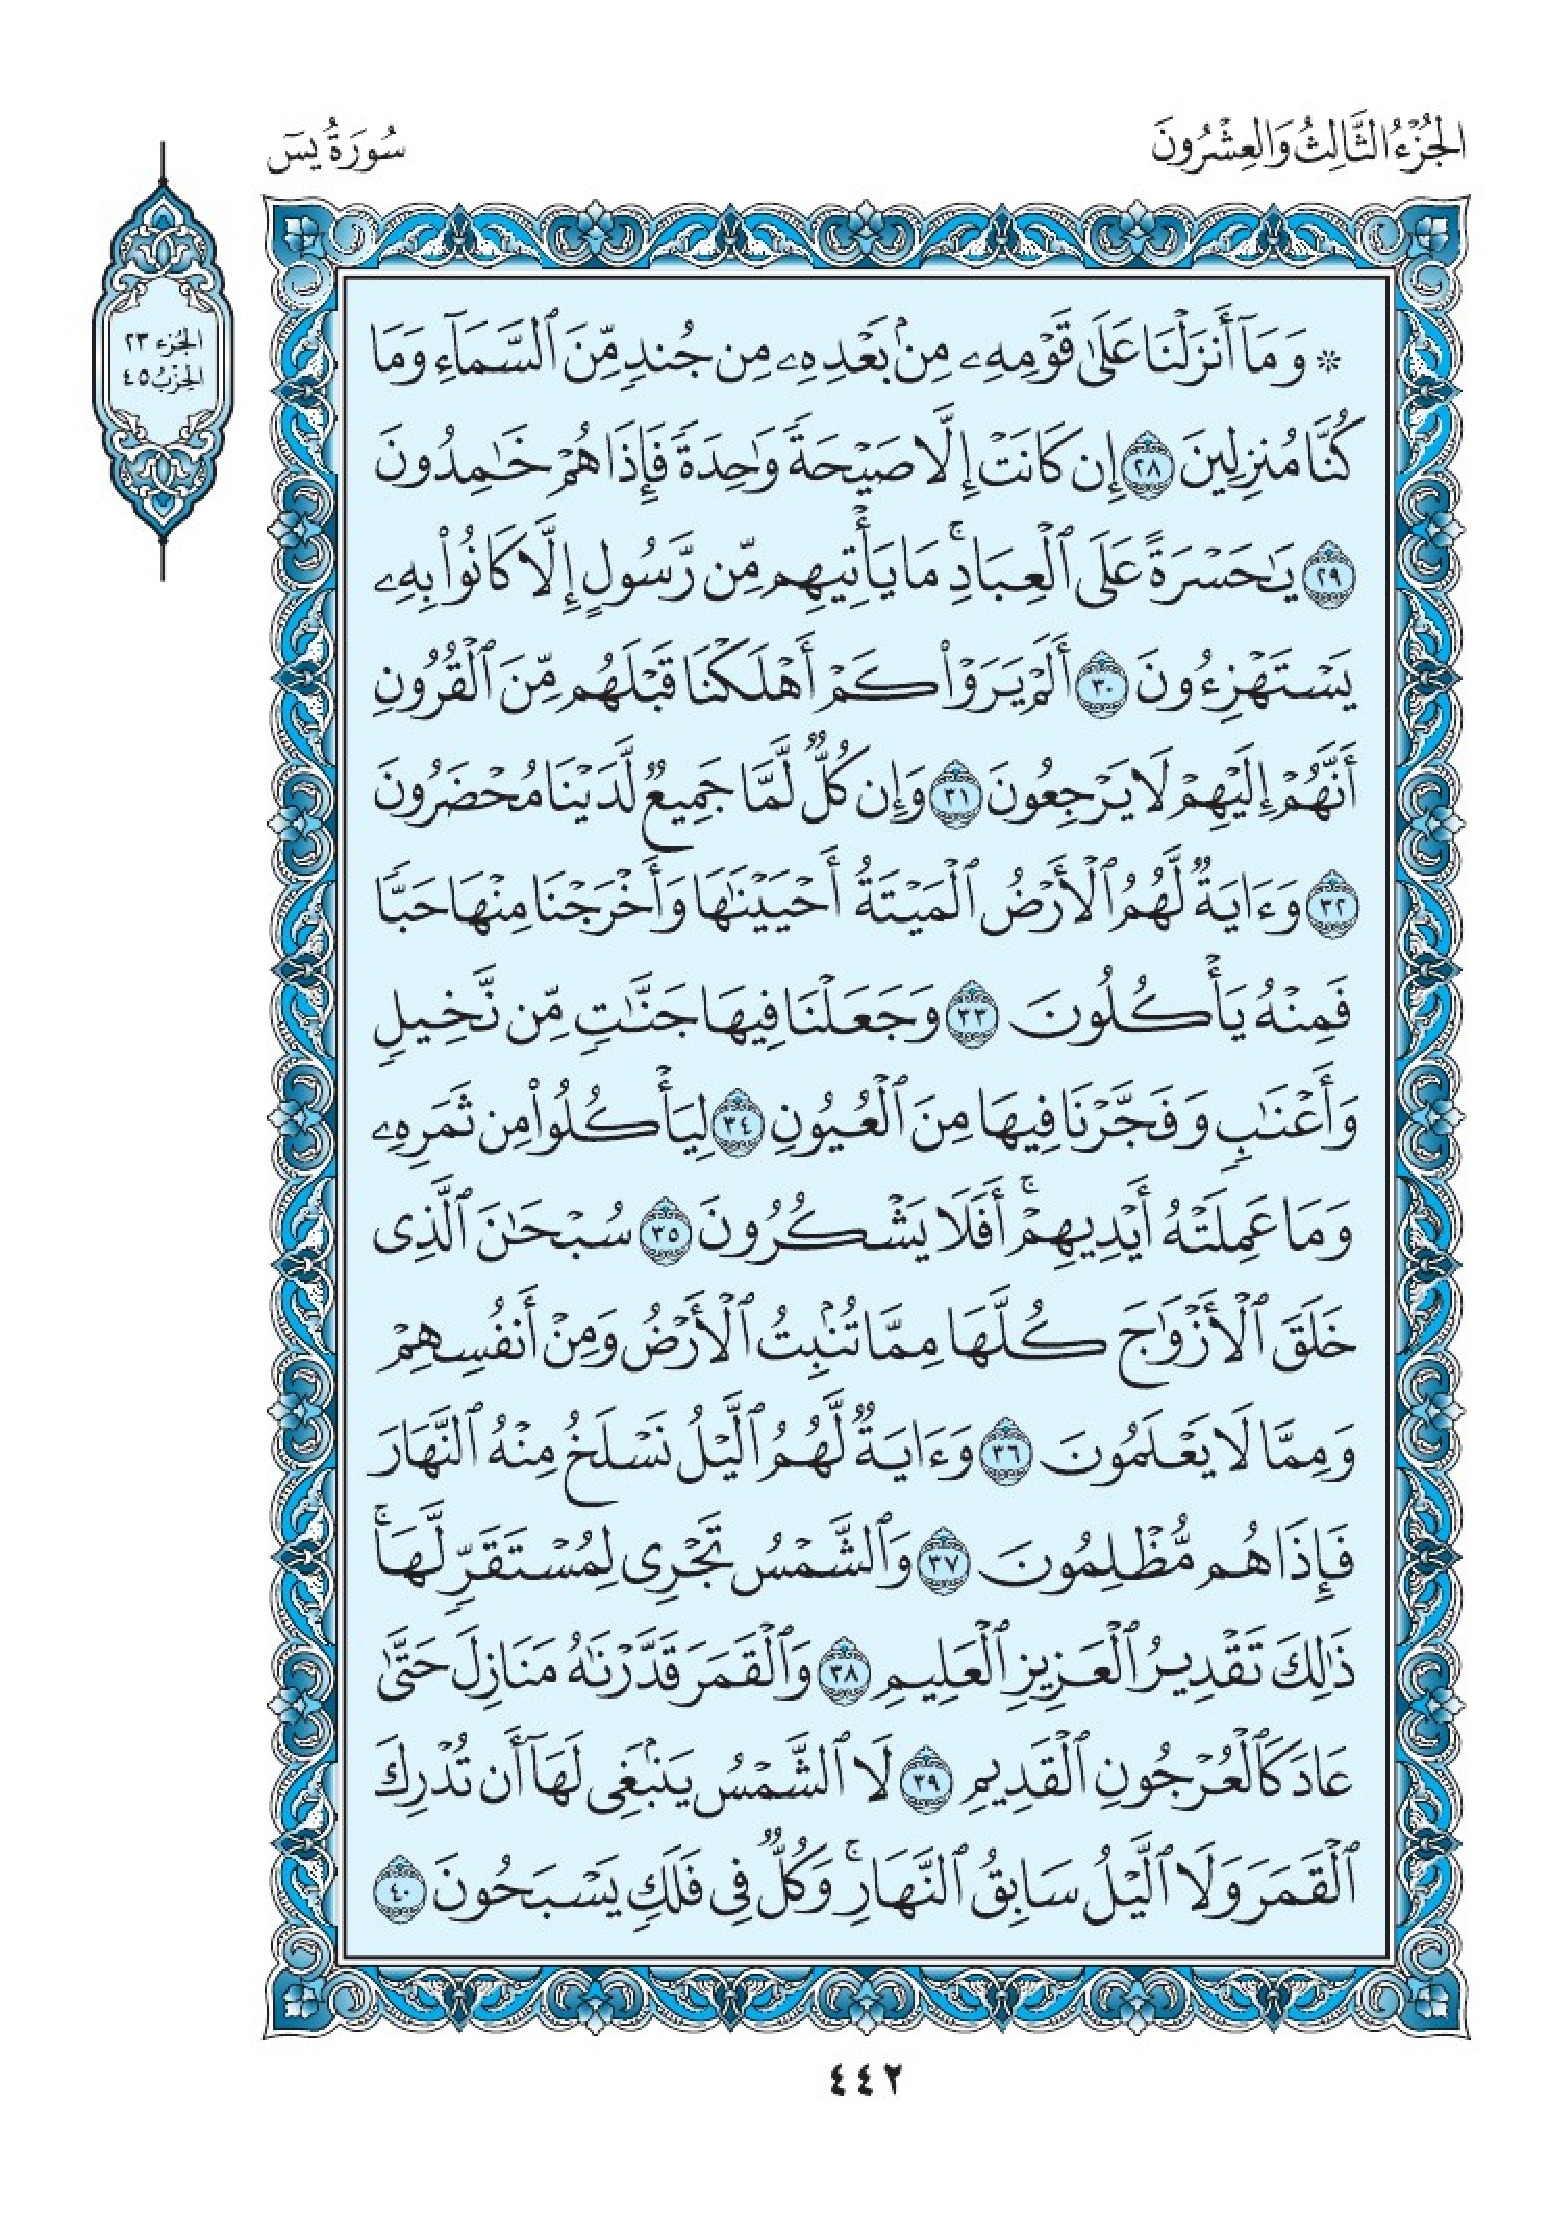 الجُزْءُ الثَّالِثُ وَالعِشْرُونَ
سُورَةُ يسٓ
الجُزء ٢٣
الحِزْبُ ٤٥
۞ وَمَآ أَنزَلْنَا عَلَىٰ قَوْمِهِۦ مِنۢ بَعْدِهِۦ مِن جُندٍ مِّنَ ٱلسَّمَآءِ وَمَا
كُنَّا مُنزِلِينَ ٢٨ إِن كَانَتْ إِلَّا صَيْحَةً وَٰحِدَةً فَإِذَا هُمْ خَٰمِدُونَ
٢٩ يَٰحَسْرَةً عَلَى ٱلْعِبَادِ ۚ مَا يَأْتِيهِم مِّن رَّسُولٍ إِلَّا كَانُوا۟ بِهِۦ
يَسْتَهْزِءُونَ ٣٠ أَلَمْ يَرَوْا۟ كَمْ أَهْلَكْنَا قَبْلَهُم مِّنَ ٱلْقُرُونِ
أَنَّهُمْ إِلَيْهِمْ لَا يَرْجِعُونَ ٣١ وَإِن كُلٌّ لَّمَّا جَمِيعٌ لَّدَيْنَا مُحْضَرُونَ
٣٢ وَءَايَةٌ لَّهُمُ ٱلْأَرْضُ ٱلْمَيْتَةُ أَحْيَيْنَٰهَا وَأَخْرَجْنَا مِنْهَا حَبًّا
فَمِنْهُ يَأْكُلُونَ ٣٣ وَجَعَلْنَا فِيهَا جَنَّٰتٍ مِّن نَّخِيلٍ
وَأَعْنَٰبٍ وَفَجَّرْنَا فِيهَا مِنَ ٱلْعُيُونِ ٣٤ لِيَأْكُلُوا۟ مِن ثَمَرِهِۦ
وَمَا عَمِلَتْهُ أَيْدِيهِمْ ۚ أَفَلَا يَشْكُرُونَ ٣٥ سُبْحَٰنَ ٱلَّذِى
خَلَقَ ٱلْأَزْوَٰجَ كُلَّهَا مِمَّا تُنۢبِتُ ٱلْأَرْضُ وَمِنْ أَنفُسِهِمْ
وَمِمَّا لَا يَعْلَمُونَ ٣٦ وَءَايَةٌ لَّهُمُ ٱلَّيْلُ نَسْلَخُ مِنْهُ ٱلنَّهَارَ
فَإِذَا هُم مُّظْلِمُونَ ٣٧ وَٱلشَّمْسُ تَجْرِى لِمُسْتَقَرٍّ لَّهَا ۚ
ذَٰلِكَ تَقْدِيرُ ٱلْعَزِيزِ ٱلْعَلِيمِ ٣٨ وَٱلْقَمَرَ قَدَّرْنَٰهُ مَنَازِلَ حَتَّىٰ
عَادَ كَٱلْعُرْجُونِ ٱلْقَدِيمِ ٣٩ لَا ٱلشَّمْسُ يَنۢبَغِى لَهَآ أَن تُدْرِكَ
ٱلْقَمَرَ وَلَا ٱلَّيْلُ سَابِقُ ٱلنَّهَارِ ۚ وَكُلٌّ فِى فَلَكٍ يَسْبَحُونَ ٤٠
٤٤٢